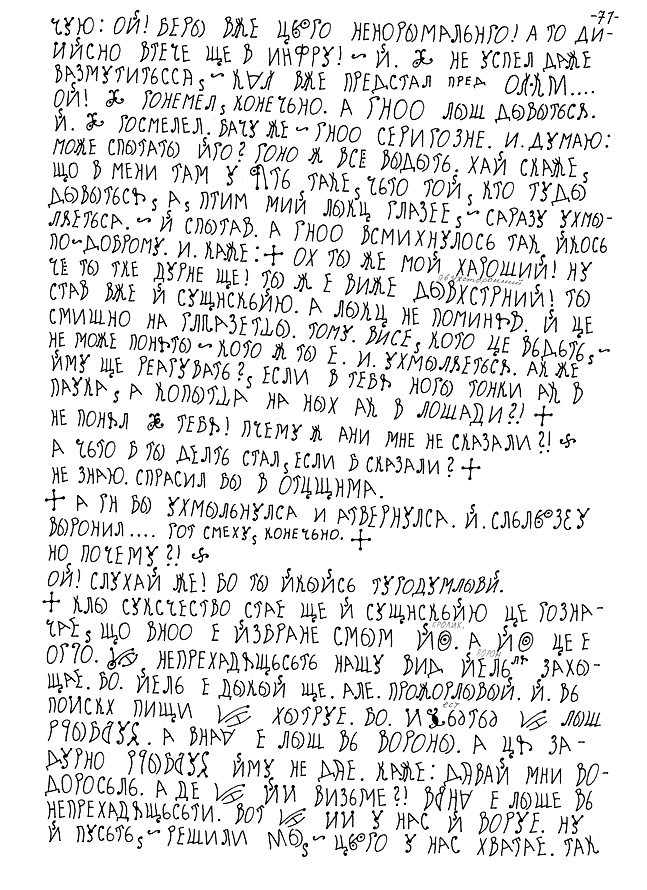 -71-
ЧУЮ: ОЙ! ВЕРЫ ВЖЕ ЦЬОГО НЕНОРЫМАЛЬНГО! А ТО ДИ-
ИЙСНО ВТЕЧЕ ЩЕ В ИНФРУ! ~ Й. НЕ УСПЕЛ ДАЖЕ
ВАЗМУТИТЬССА, ~ ВЖЕ ПРЕДСТАЛ ПРЕД
ОЙ! ГОНЕМЕЛ, КОНЕЧЬНО. А ГНОО ЛЫШ ДЫВЫТЬСЯ.
Й. ГОСМЕЛЕЛ. БАЧУ ЖЕ ~ ГНОО СЕРИГОЗНЕ. И. ДУМАЮ:
МОЖЕ СПЫТАТЫ ЙГО? ГОНО Ж ВСЕ ВЫДЫТЬ. ХАЙ СКАЖЕ,
ЩО В МЕНИ ТАМ У ТАКЕ, ЧЬТО ТОЙ, КТО ТУДЫ
ДЫВЫТЬСЯ, А, ПТИМ МИЙ ЛЫКЦ ГЛАЗЕЕ, ~ САРАЗУ УХМЫ-
ЛЯЕТЬСА. ~ Й СПЫТАВ. А ГНОО ВСМИХНУЛОСЬ ТАК, ЙКОСЬ
ПО~ДОБРОМУ. И. КАЖЕ: + ОХ ТЫ ЖЕ МОЙ ХАРОШИЙ! НУ
ЧЕ ТЫ ТКЕ ДУРНЕ ЩЕ! ТЫ Ж Е ВИЖЕ ДЫВХСТРНИЙ! ТЫ
СТАВ ВЖЕ Й СУЩНСКЬЙЮ. А ЛЫКЦ НЕ ПОМИНЯВ. Й ЦЕ
СМИШНО НА ТОМУ. ВИСЕ, КОТО ЦЕ ВЬДЬТЬ, ~
НЕ МОЖЕ ПОНЯТЫ ~ КОТО Ж ТЫ Е. И. УХМЫЛЯЕТЬСЯ. АК ЖЕ
ЙМУ ЩЕ РЕАГУВАТЬ?, ЕСЛИ В ТЕБЯ НОГЫ ТОНКИ АК В
ПАУКА, А КОПЫТЦА НА НЫХ АК В ЛОШАДИ?! +
НЕ ПОНЯЛ ТЕБЯ! ПЧЕМУ Ж АНИ МНЕ НЕ СКАЗАЛИ?!
А ЧЬТО В ТЫ ДЕЛТЬ СТАЛ, ЕСЛИ В СКАЗАЛИ? +
НЕ ЗНАЮ. СПРАСИЛ БЫ В ОТЦЩНМА.
+ А ГН БЫ УХМЫЛЬНУЛСА И АТВЕРНУЛСА. Й.
ВЫРОНИЛ.... ГОТ СМЕХУ, КОНЕЧЬНО. +
НО ПОЧЕМУ?!
ОЙ! СЛУХАЙ ЖЕ! БО ТЫ ЙКЫЙСЬ ТУГОДУМЛЫВЙ.
+ КЛЫ СУКСЧЕСТВО СТАЕ ЩЕ Й СУЩНСКЬЙЮ ЦЕ ГОЗНА-
ЧАЕ, ЩО ВНОО Е ЙЗБРАНЕ СМЫМ А ЦЕ Е
НЕПРЕХАДЯЩЬСЬТЬ НАШУ ВИД ЙЕЛЬ ЗАХЫ-
ЩАЕ. БО. ЙЕЛЬ Е ДЫКЫЙ ЩЕ. АЛЕ. ПРОЖОРЛЫВЫЙ. Й. ВЬ
ПОИСКХ ПИЩИ ХЫТРУЕ. БО. ЛЫШ
А Е ЛЫШ ВЬ ВОРОНЫ. А ЦЯ ЗА-
ДУРНО ЙМУ НЕ ДАЕ. КАЖЕ: ДАВАЙ МНИ ВО-
ДОРОСЬЛЬ. А ДЕ ЙИ ВИЗЬМЕ?! Е ЛЫШЕ ВЬ
НЕПРЕХАДЯЩЬСЬТИ. ВОТ ИИ У НАС Й ВОРУЕ. НУ
Й ПУСЬТЬ, ~ РЕШИЛИ МЫ, ~ ЦЬОГО У НАС ХВАТАЕ. ТАК